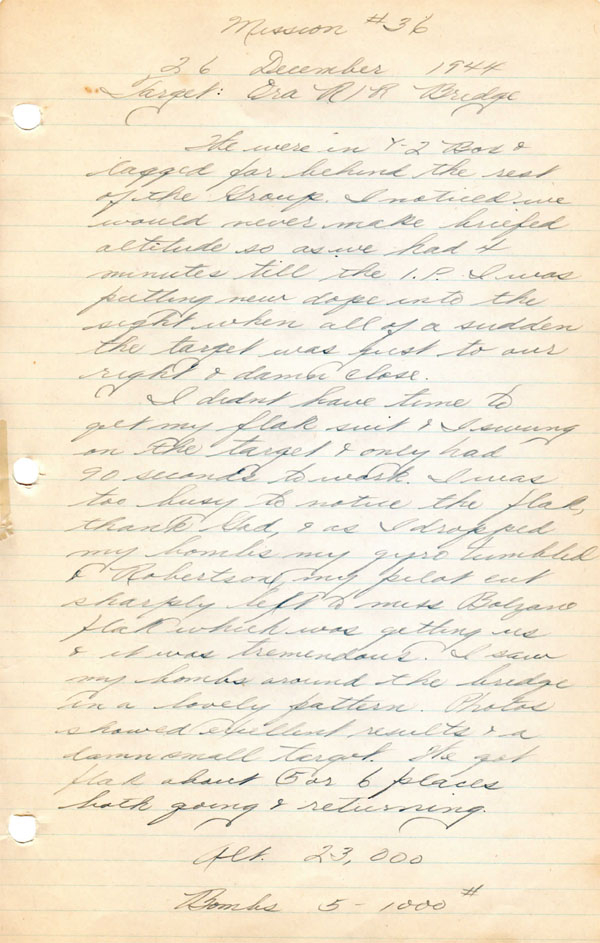 Mission #36
26 December 1944
Target: Ora R/R Bridge
We were in Y-2 Box &
lagged far behind the rest
of the Group. I noticed we
would never make briefed
altitude so as we had 4
minutes till the I.P. I was
putting new dope into the
sight when all of a sudden
the target was just to our
right & damn close.
I didnt have time to
get my flak suit & I swung
on the target & only had
90 seconds to work. I was
too busy to notice the flak,
thank God, & as I dropped
my bombs my gyro tumbled
& Robertson, my pilot cut
sharply left to miss Bolzano
flak which was getting us
& it was tremendous. I saw
my bombs around the bridge
in a lovely pattern. Photos
showed excellent results & a
damn small target. We got
flak about 5 or 6 places
both going & returning.
Alt. 23,000
Bombs 5 - 1000#